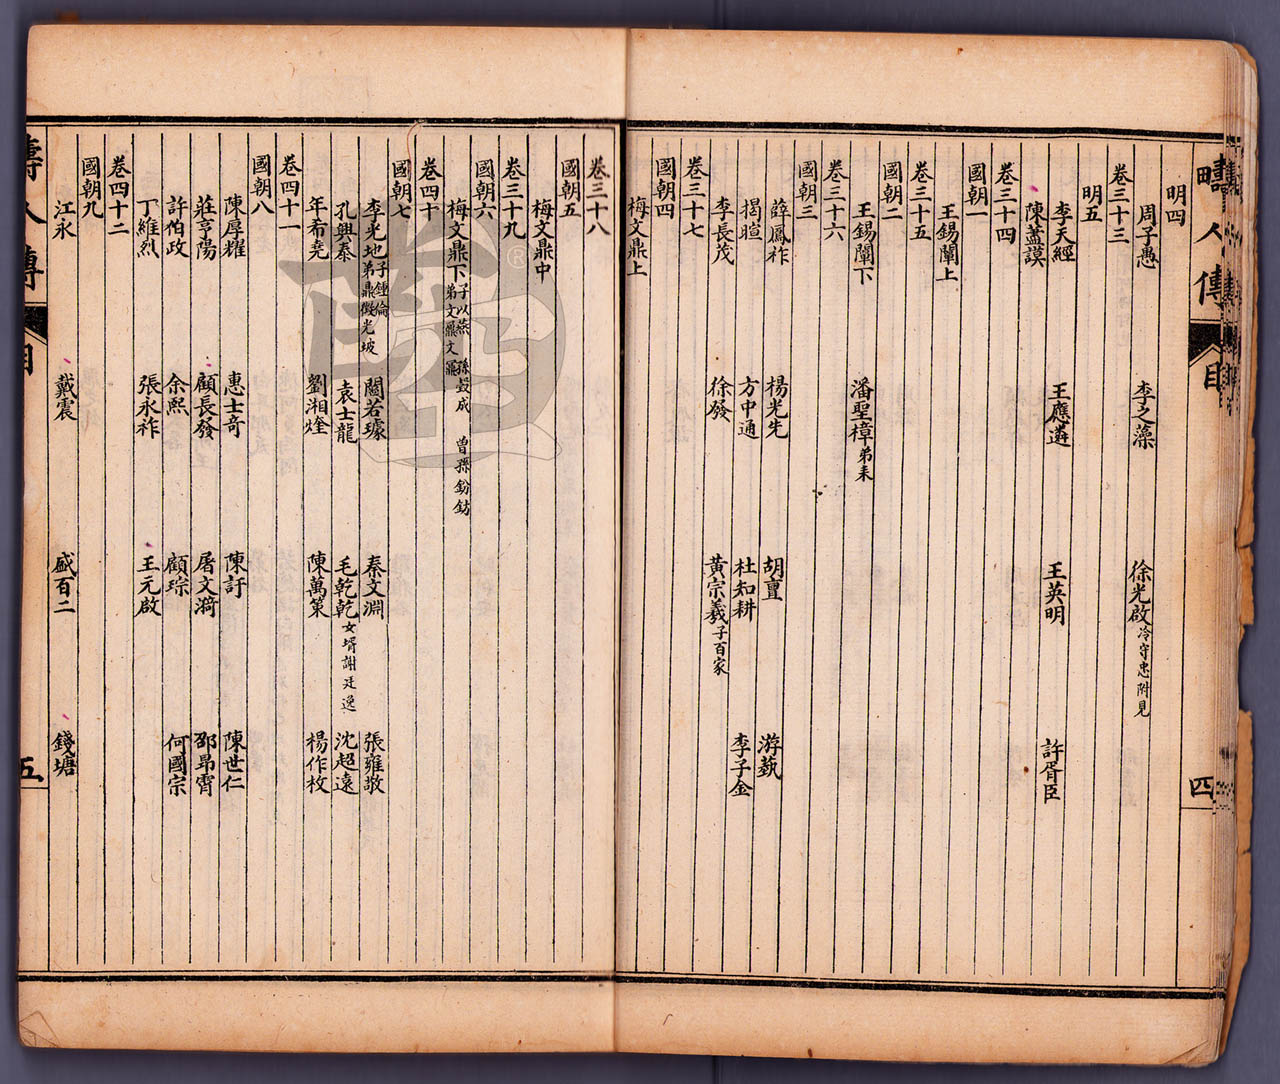 疇人傳
目
四
明四
周子愚 李之藻 徐光啟 冷守忠附見
卷三十三
明五
李天經 王應遴 王英明 許胥臣
陳藎謨
卷三十四
國朝一
王錫闡上
卷三十五
國朝二
王錫闡下 潘聖樟 弟耒
卷三十六
國朝三
薛鳳祚 楊光先 胡亶 游藝
揭暄 方中通 杜知耕 李子金
李長茂 徐發 黃宗羲 子百家
卷三十七
國朝四
梅文鼎上
卷三十八
國朝五
梅文鼎中
卷三十九
國朝六
梅文鼎下 子以燕 孫瑴成 曾孫鈖鈁 弟文鼐文鼏
卷四十
國朝七
李光地 子鍾倫 弟鼎徵光坡 閻若璩 秦文淵 張雍敬
孔興泰 袁士龍 毛乾乾 女壻謝廷逸 沈超遠
年希堯 劉湘煃 陳萬策 楊作枚
卷四十一
國朝八
陳厚耀 惠士奇 陳訏 陳世仁
莊亨陽 顧長發 屠文漪 邵昂霄
許伯政 余熙 顧琮 何國宗
丁維烈 張永祚 王元啟
卷四十二
國朝九
江永 戴震 盛百二 錢塘
疇人傳
目
五